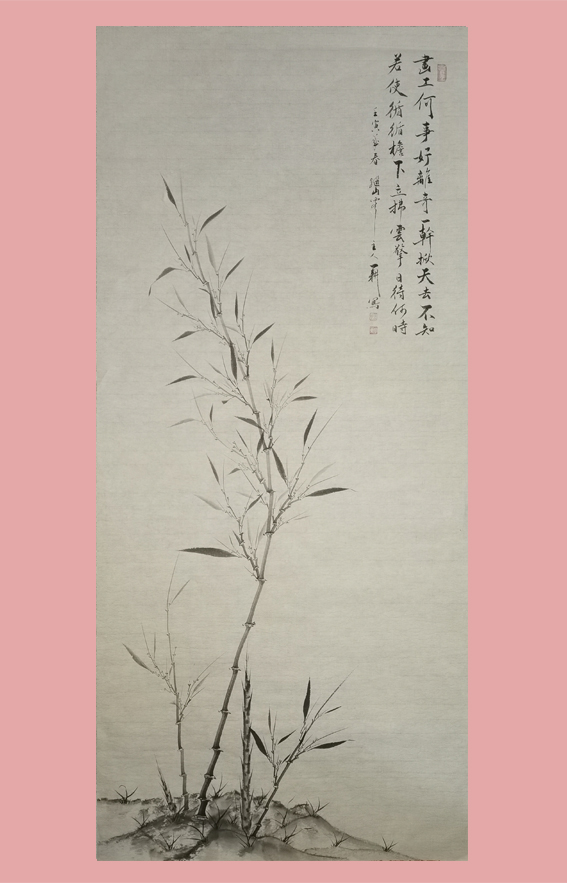 畫工何事好離奇一幹掀天去不知
若使循循檐下立拂雲擎日待何時
壬寅春 主人一耕寫